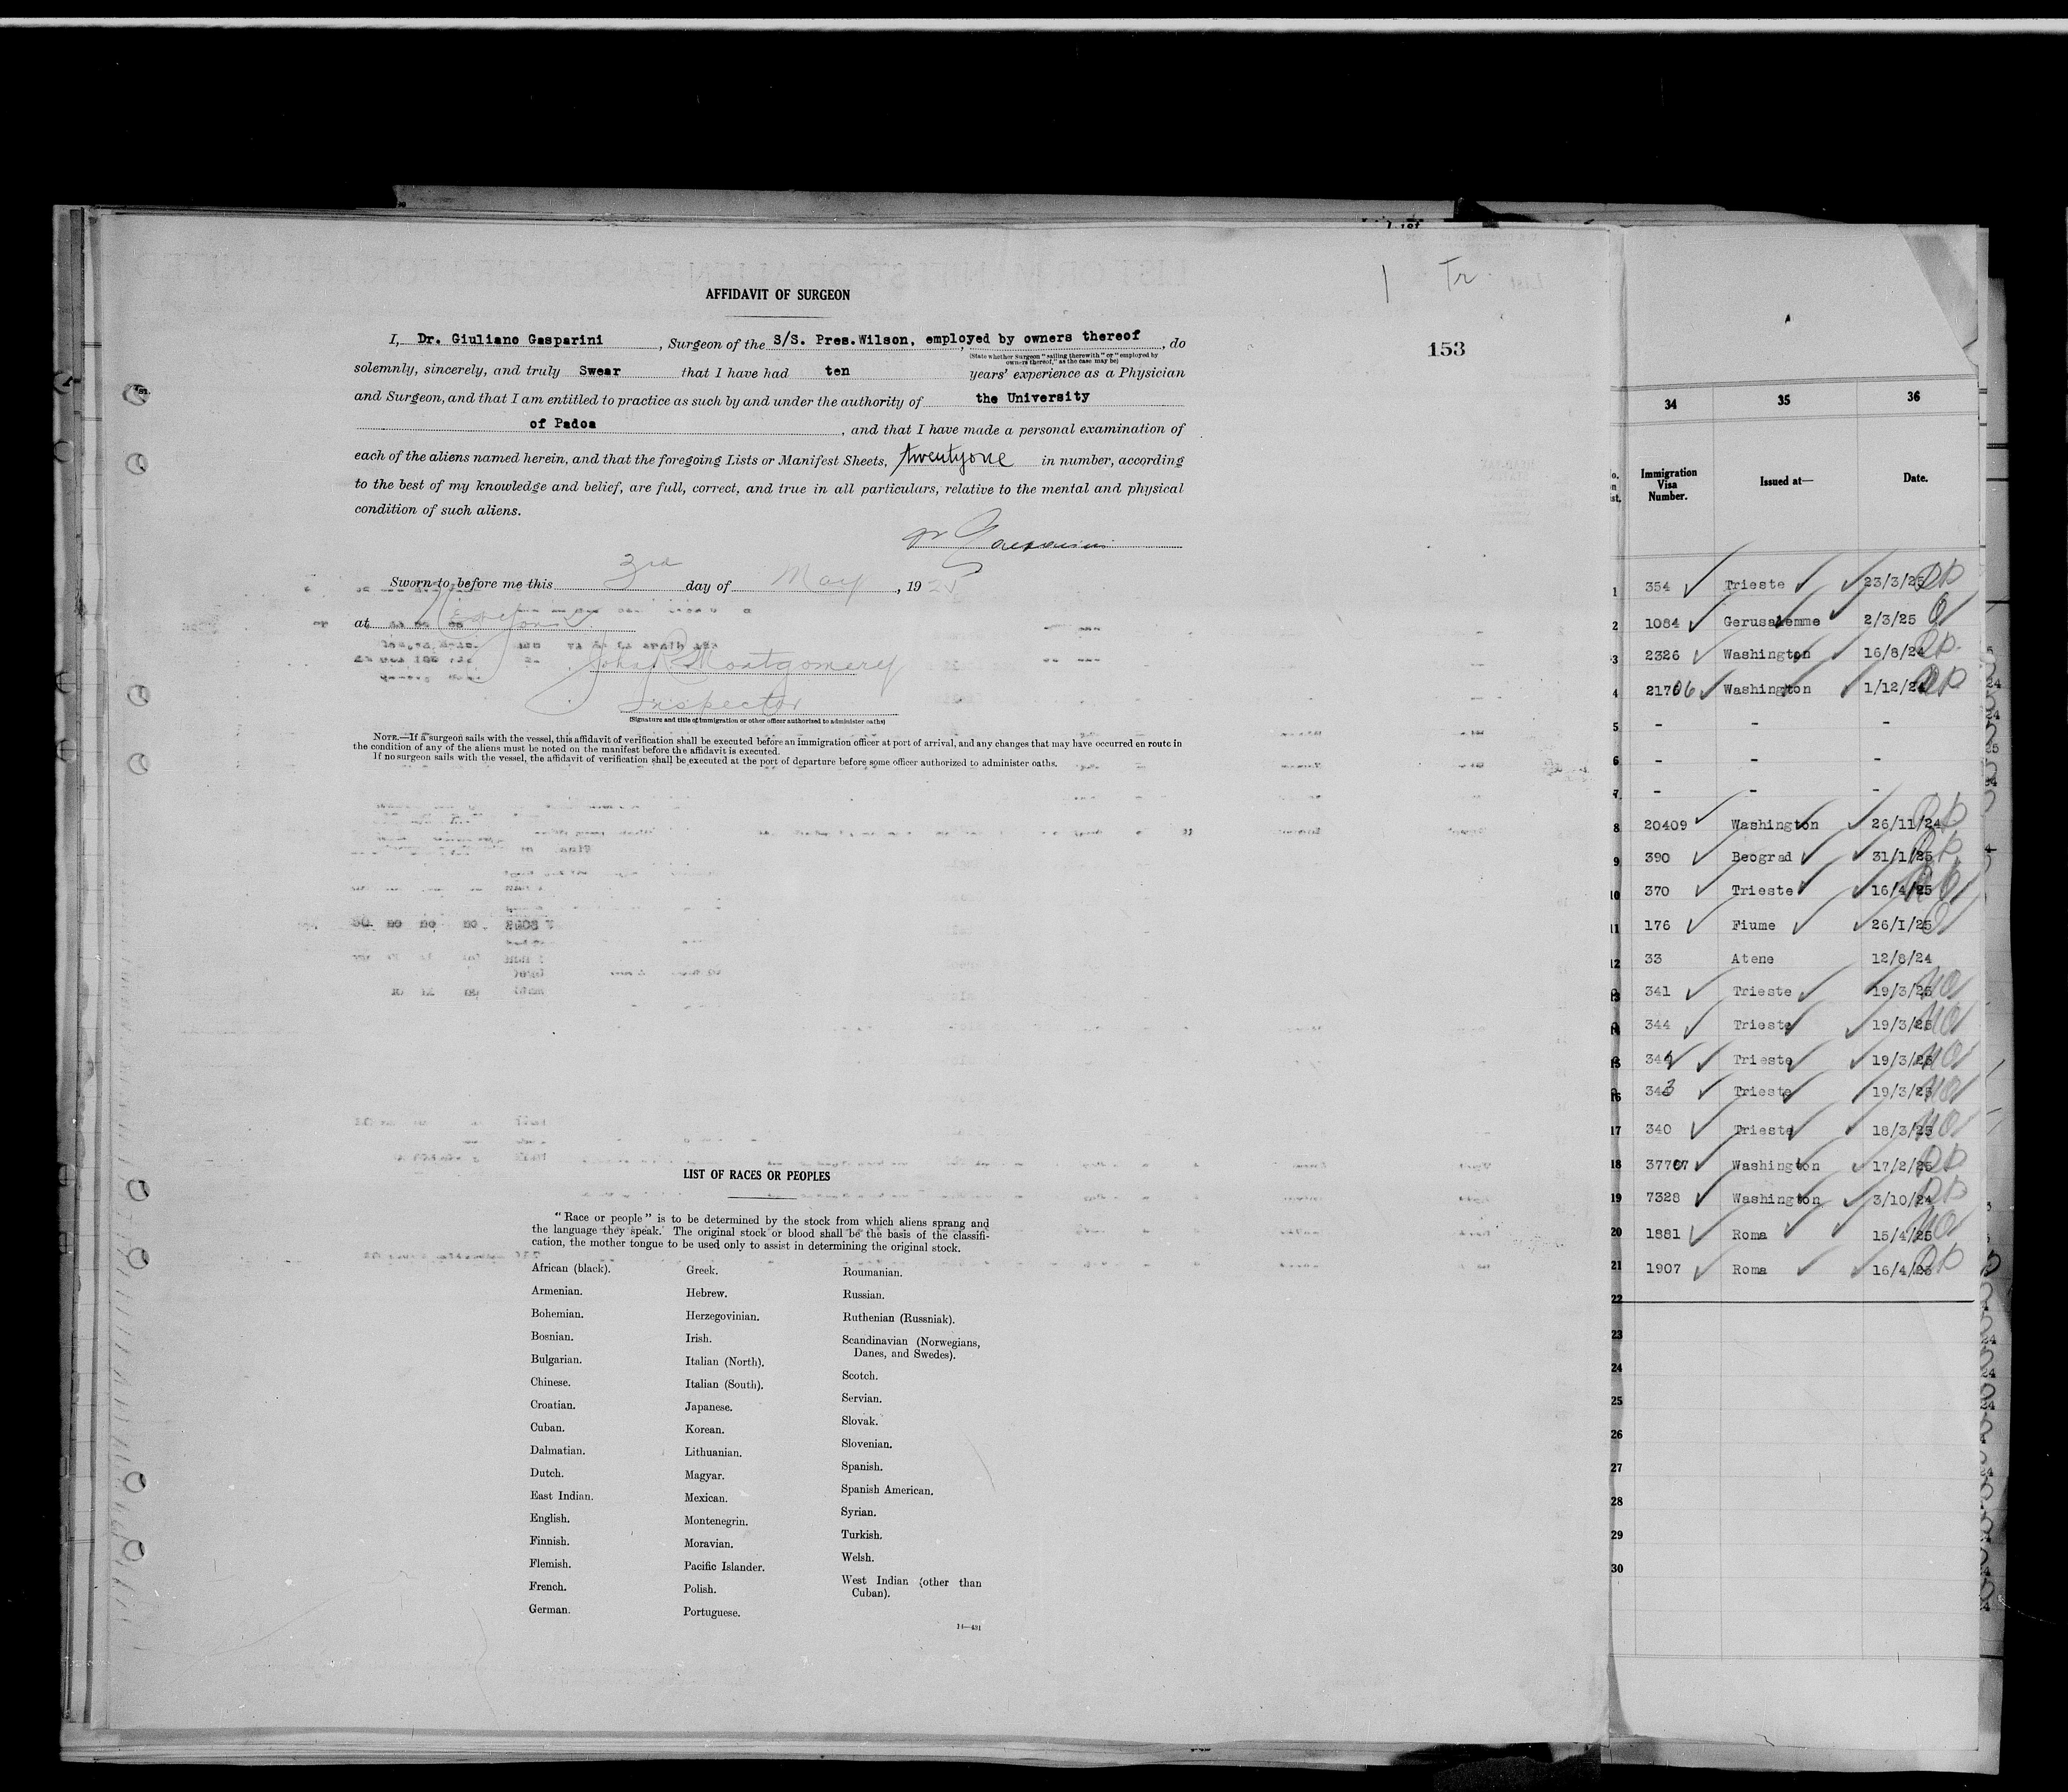 1 Tr.
AFFIDAVIT OF SURGEON
153
I, Dr. Giuliano Gasparini, Surgeon of the S/S. Pres.Wilson, employed by owners thereof, do
(State whether Surgeon "sailing therewith" or "employed by
owners thereof," as the case may be)
solemnly, sincerely, and truly Swear that I have had ten years' experience as a Physician
and Surgeon, and that I am entitled to practice as such by and under the authority of the University
of Padoa, and that I have made a personal examination of
each of the aliens named herein, and that the foregoing Lists or Manifest Sheets, twentyone in number, according
to the best of my knowledge and belief, are full, correct, and true in all particulars, relative to the mental and physical
condition of such aliens.
Dr Gasparini
Sworn to before me this 3rd day of May, 1925
at
John R Montgomery
Inspector
(Signature and title of immigration or other officer authorized to administer oaths)
NOTE.—If a surgeon sails with the vessel, this affidavit of verification shall be executed before an immigration officer at port of arrival, and any changes that may have occurred en route in
the condition of any of the aliens must be noted on the manifest before the affidavit is executed.
If no surgeon sails with the vessel, the affidavit of verification shall be executed at the port of departure before some officer authorized to administer oaths.
LIST OF RACES OR PEOPLES
"Race or people" is to be determined by the stock from which aliens sprang and
the language they speak. The original stock or blood shall be the basis of the classifi-
cation, the mother tongue to be used only to assist in determining the original stock.
African (black).
Armenian.
Bohemian.
Bosnian.
Bulgarian.
Chinese.
Croatian.
Cuban.
Dalmatian.
Dutch.
East Indian.
English.
Finnish.
Flemish.
French.
German.
Greek.
Hebrew.
Herzegovinian.
Irish.
Italian (North).
Italian (South).
Japanese.
Korean.
Lithuanian.
Magyar.
Mexican.
Montenegrin.
Moravian.
Pacific Islander.
Polish.
Portuguese.
Roumanian.
Russian.
Ruthenian (Russniak).
Scandinavian (Norwegians,
Danes, and Swedes).
Scotch.
Servian.
Slovak.
Slovenian.
Spanish.
Spanish American.
Syrian.
Turkish.
Welsh.
West Indian (other than
Cuban).
14—431
34 35 36
Immigration
Visa
Number.
Issued at—
Date.
1 354 Trieste 23/3/25
2 1084 Gerusalemme 2/3/25
3 2326 Washington 16/8/24
4 21706 Washington 1/12/24
5 - - -
6 - - -
7 - - -
8 20409 Washington 26/11/24
9 390 Beograd 31/1/25
10 370 Trieste 16/4/25
11 176 Fiume 26/I/25
12 33 Atene 12/8/24
13 341 Trieste 19/3/25
14 344 Trieste 19/3/25
15 342 Trieste 19/3/25
16 343 Trieste 19/3/25
17 340 Trieste 18/3/25
18 37707 Washington 17/2/25
19 7328 Washington 3/10/24
20 1881 Roma 15/4/25
21 1907 Roma 16/4/25
22
23
24
25
26
27
28
29
30